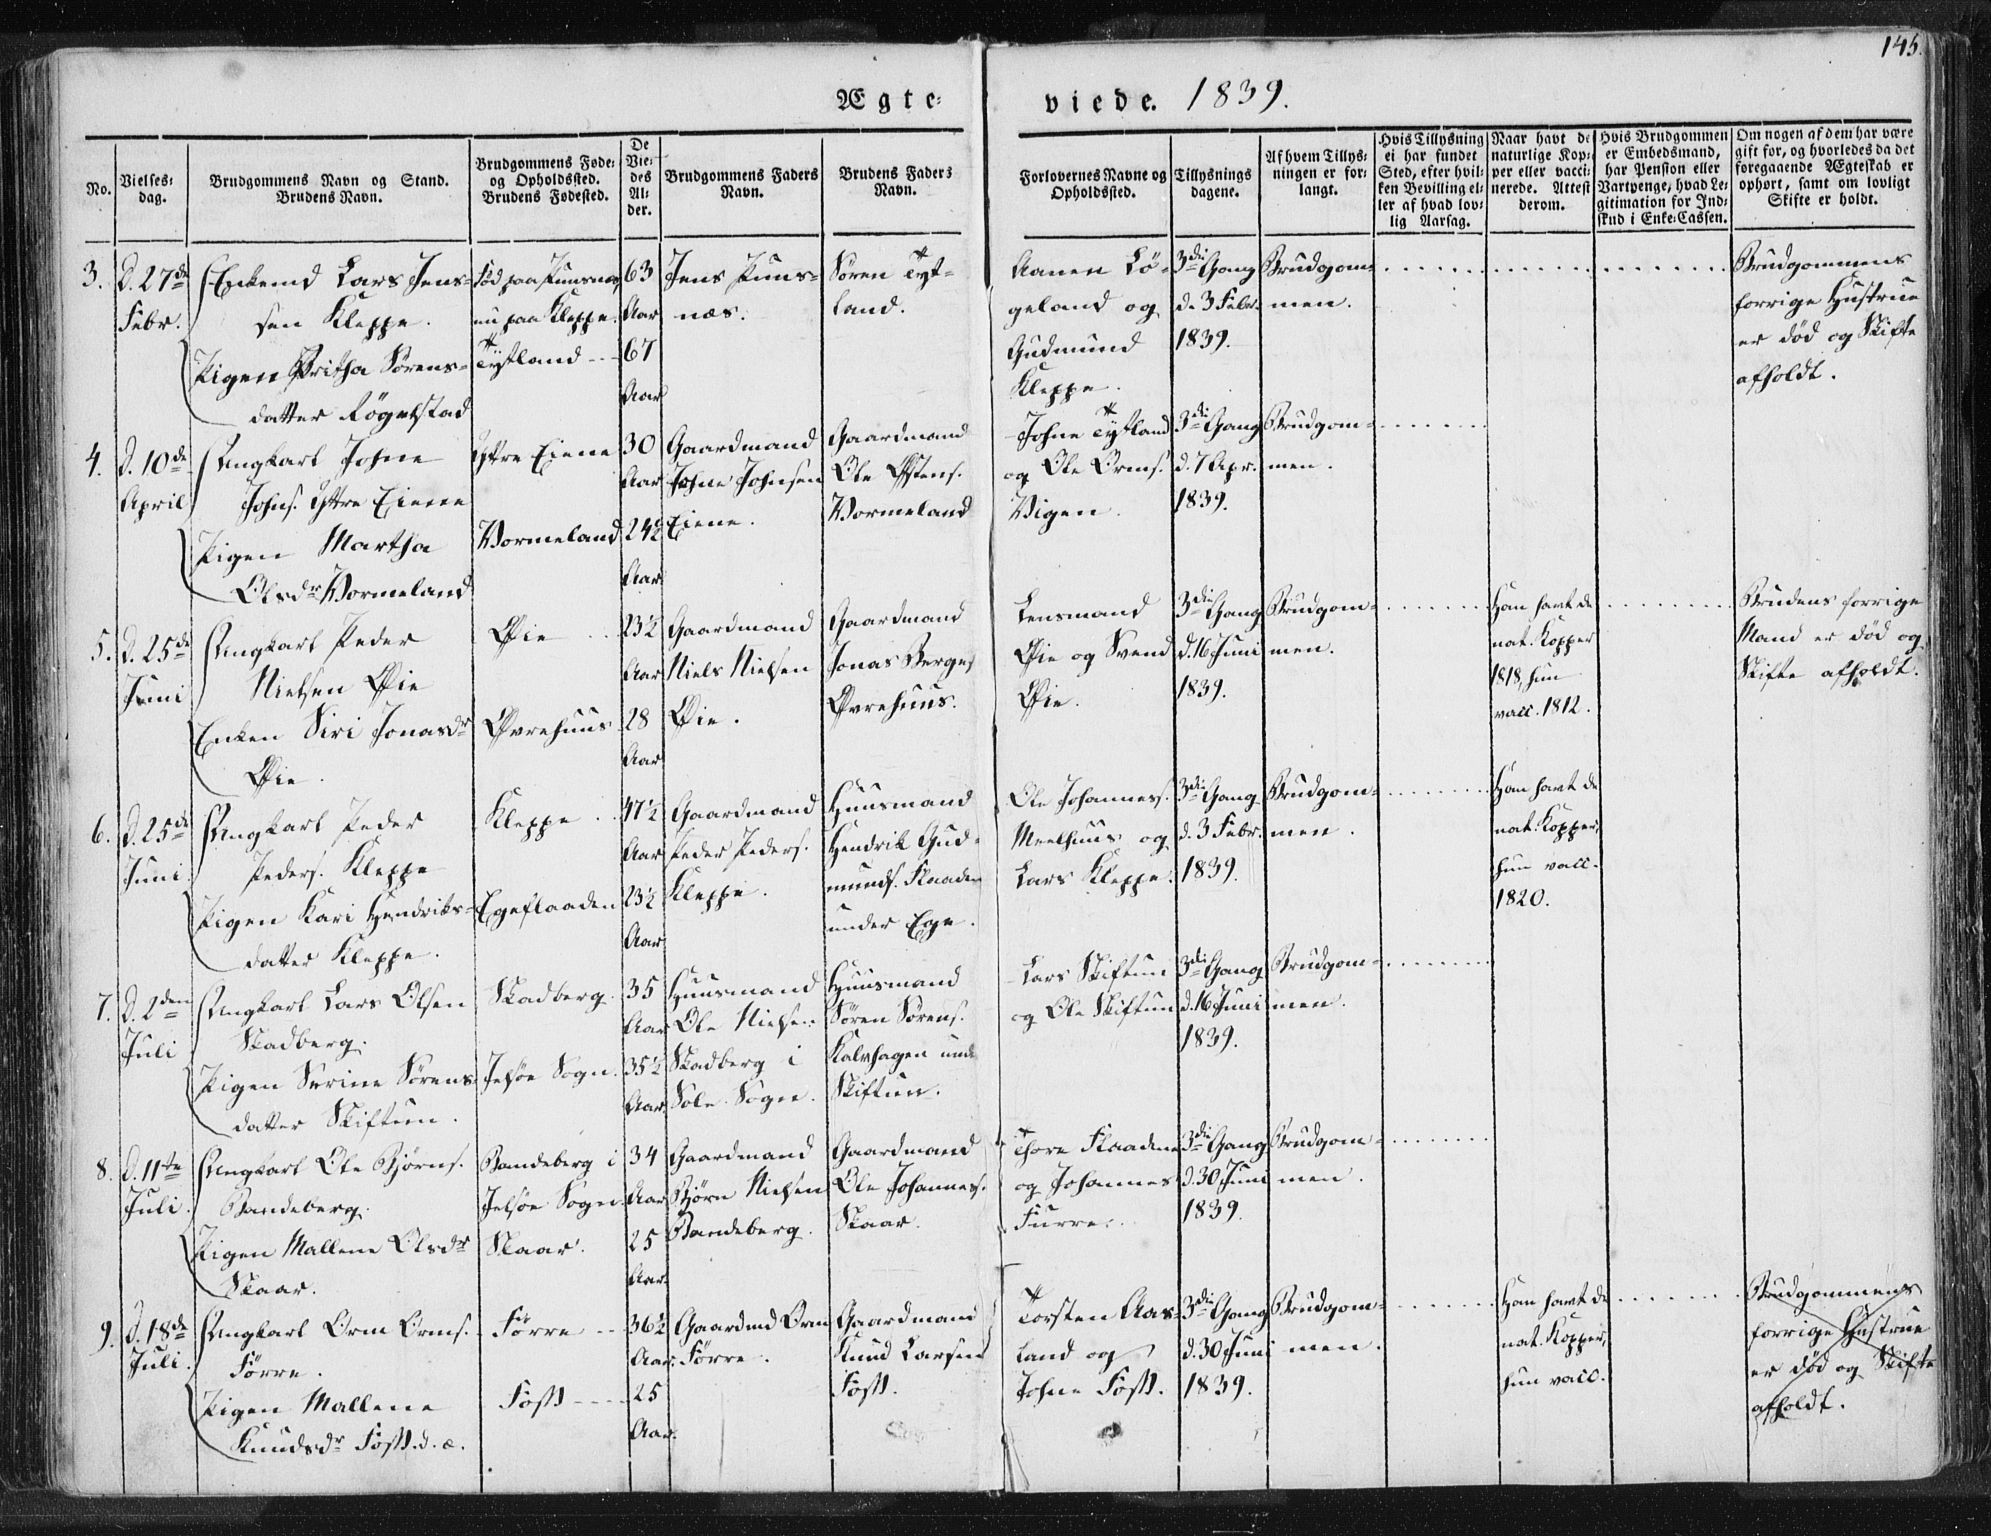 145.
Ægte- viede. 1839.
No.
Vielses-
dag.
Brudgommens Navn og Stand.
Brudens Navn.
Brudgommens Føde-
og Opholdssted.
Brudens Fødested.
De
Vie-
des
Al-
der.
Brudgommens Faders
Navn.
Brudens Faders
Navn.
Forlovernes Navne og
Opholdssted.
Tillysnings
dagene.
Af hvem Tillys-
ningen er for-
langt.
Hvis Tillysning
ei har fundet
Sted, efter hvil-
ken Bevilling el-
ler af hvad lov-
lig Aarsag.
Naar havt de
naturlige Kop-
per eller vacci-
nerede. Attest
derom.
Hvis Brudgommen
er Embedsmand,
har Pension eller
Vartpenge, hvad Le-
gitimation for Ind-
skud i Enke-Cassen.
Om nogen af dem har være
gift for, og hvorledes da det
foregaaende Ægteskab er
ophørt, samt om lovligt
Skifte er holdt.
3.
D. 27de
Febr.
Enkemd Lars Jens-
sen Kleppe.
Pigen Britha Sørens-
datter Røgelstad
nu paa Kleppe.
Tystland
63
Aar
67
Aar
Jens
næs.
Søren Tyst-
land.
Aanen Lø-
geland og
Gudmund
Kleppe.
3die Gang
d. 3 Febr.
1839.
Brudgom-
men.
Brudgommens
forrige Hustrue
er død og Skifte
afholdt.
4.
D. 10de
April
Ungkarl Johne
Johns. Yttre Eiene
Pigen Martha
Olsdr Vormeland
Yttre Eiene
Vormeland
30
Aar
24½
Aar
Gaardmand
Johne Johnsen
Eiene.
Gaardmand
Ole Østens.
Vormeland
Johne Tystland
og Ole Orms.
Vigen.
3die Gang
d. 7 Apr.
1839.
Brudgom-
men.
5.
D. 25de
Juni
Ungkarl Peder
Nielsen Øie
Enken Siri Jonasdr
Øie.
Øie
Øvrehuus
23½
Aar
28
Aar
Gaardmand
Niels Nielsen
Øie.
Gaardmand
Jonas Berges
Øvrehuus.
Lensmand
Øie og Svend
Øie.
3die Gang
d. 16 Juni
1839.
Brudgom-
men.
Han havt de
nat. Kopper
1818, hun
vacc. 1812.
Brudens forrige
Mand er død og
Skifte afholdt.
6.
D. 25de
Juni
Ungkarl Peder
Peders. Kleppe
Pigen Kari Hendriks-
datter Kleppe.
Kleppe
Egeflaaden
47½
Aar
23½
Aar
Gaardmand
Peder Peders.
Kleppe.
Huusmand
Hendrik Gud-
munds. Flaaden
under Ege.
Ole Johannes.
Meelhuus og
Lars Kleppe.
3die Gang
d. 3 Febr.
1839.
Brudgom-
men.
Han havt de
nat. Kopper,
hun vacc.
1820.
7.
D. 2den
Juli
Ungkarl Lars Olsen
Skadberg.
Pigen Serine Sørens-
datter Skiftun.
Skadberg.
Jelsøe Sogn.
35
Aar
35½
Aar
Huusmand
Ole Nielsen
Skadberg i
Sole Sogn.
Huusmand
Søren Sørens.
Kalvhagen unde
Skiftun.
Lars Skiftun
og Ole Skiftun
3die Gang
d. 16 Juni
1839.
Brudgom-
men.
8.
D. 11te
Juli.
Ungkarl Ole Bjørns.
Bandeberg.
Pigen Mallene Olsdr
Skaar.
Bandeberg i
Jelsøe Sogn
Skaar.
34
Aar
25
Aar
Gaardmand
Bjørn Nielsen
Bandeberg.
Gaardmand
Ole Johannes.
Skaar.
Thore Flaadene
og Johannes
Furre.
3die Gang
d. 30 Juni
1839.
Brudgom-
men.
9.
D. 18de
Juli.
Ungkarl Orm Orms.
Førre.
Pigen Mallene
Knudsdr Foss. d. æ.
Førre
Foss
36½
Aar.
25
Aar.
Gaardmd Orm
Førre.
Gaardmand
Knud Larsen
Foss.
Torsten Aas-
land og
Johne Foss.
3die Gang
d. 30 Juni
1839.
Brudgom-
men.
Han havt de
nat. Kopper,
hun vacc.
Brudgommens
forrige Hustrue
er død og Skifte
afholdt.